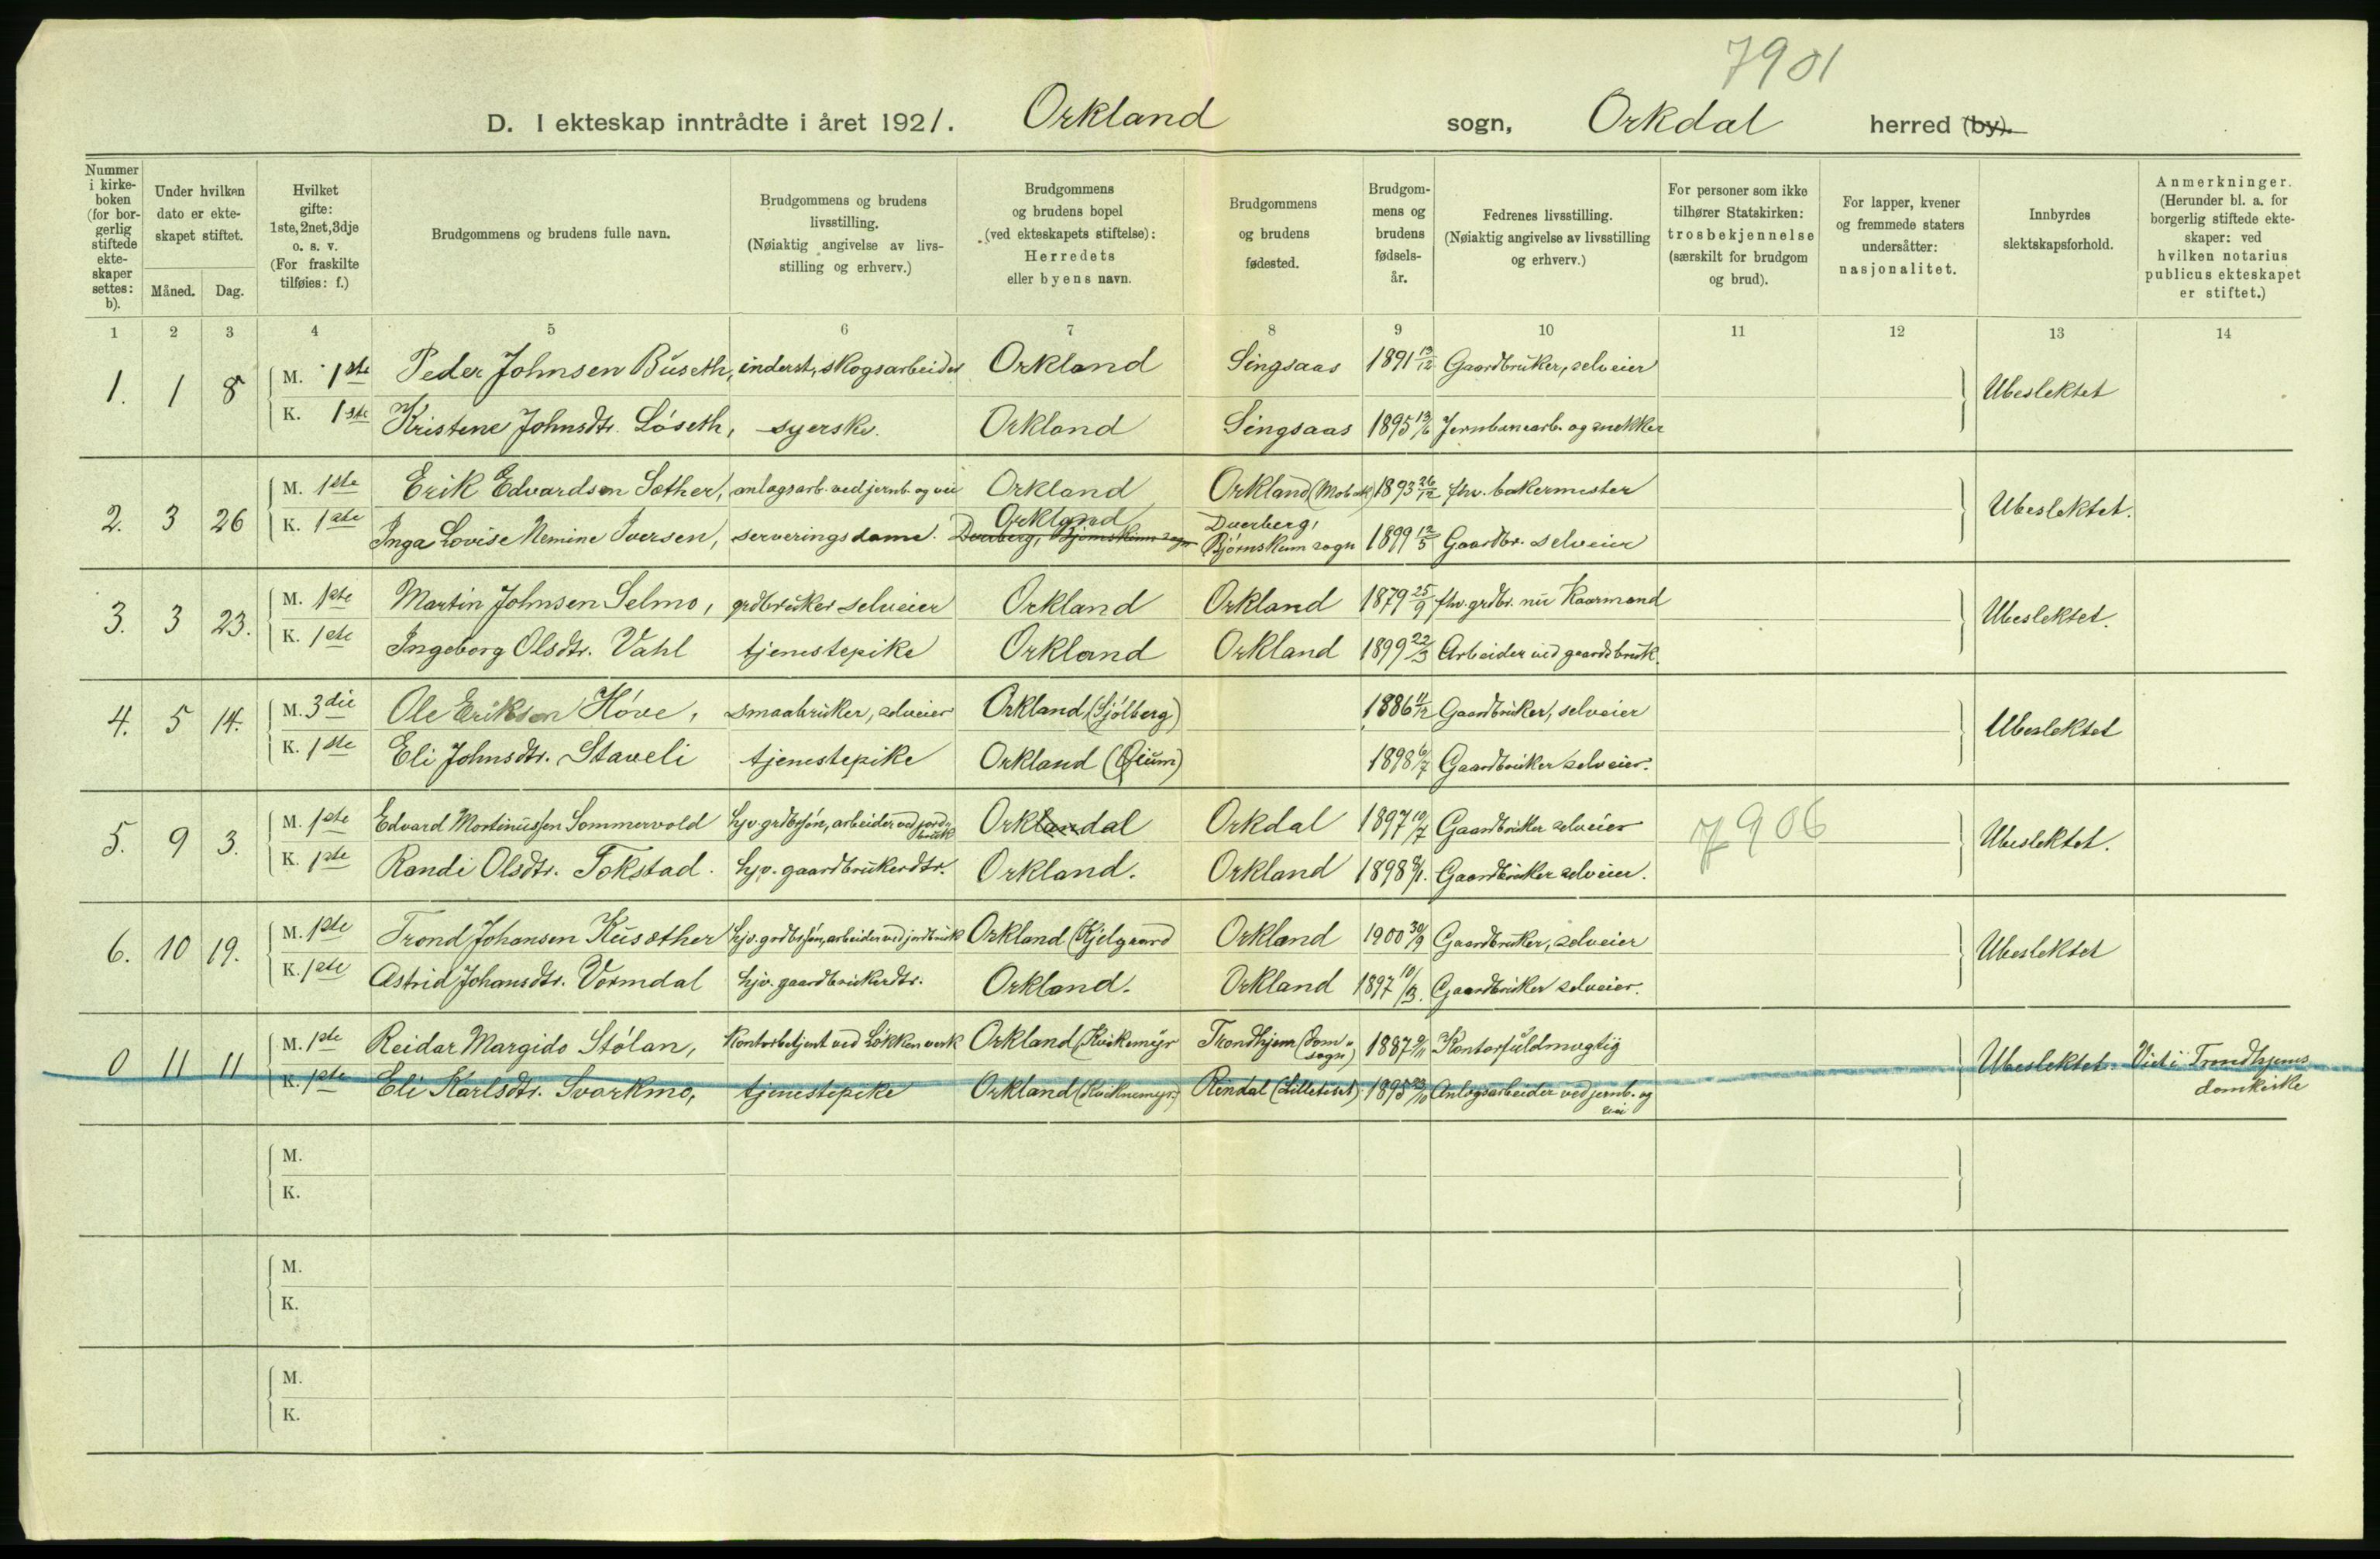 7901
D. I ekteskap inntrådte i året 1921. Orkland sogn, Orkdal herred (by).
Nummer i kirkeboken (for borgerlig stiftede ekteskaper settes: b).
Under hvilken dato er ekteskapet stiftet.
Måned. Dag.
Hvilket gifte: 1ste, 2net, 3dje o. s. v. (For fraskilte tilføies: f.)
Brudgommens og brudens fulle navn.
Brudgommens og brudens livsstilling. (Nøiaktig angivelse av livsstilling og erhverv.)
Brudgommens og brudens bopel (ved ekteskapets stiftelse): Herredets eller byens navn.
Brudgommens og brudens fødested.
Brudgommens og brudens fødselsår.
Fedrenes livsstilling. (Nøiaktig angivelse av livsstilling og erhverv.)
For personer som ikke tilhører Statskirken: trosbekjennelse (særskilt for brudgom og brud).
For lapper, kvener og fremmede staters undersåtter: nasjonalitet.
Innbyrdes slektskapsforhold.
Anmerkninger. (Herunder bl. a. for borgerlig stiftede ekteskaper: ved hvilken notarius publicus ekteskapet er stiftet.)
1 2 3 4 5 6 7 8 9 10 11 12 13 14
1. 1 8 M. 1ste Peder Johnsen Buseth, inderst, skogsarbeider Orkland Singsaas 1891 13/12 Gaardbruker, selveier Ubeslektet
K. 1ste Kristene Johnsdtr. Løseth, syerske. Orkland Singsaas 1895 13/6 Jernbanearb. og snekker
2. 3 26 M. 1ste Erik Edvardsen Sæther, anlagsarb. ved jernb. og vei Orkland Orkland (Mobak) 1893 26/12 fhv. bakermester Ubeslektet.
K. 1ste Inga Lovise Nemine Iversen, serveringsdame. Orkland Dverberg, Bjørnskinn sogn Dverberg, Bjørnskinn sogn 1899 12/5 Gaardbr. selveier
3. 3 23. M. 1ste Martin Johnsen Selmo, grdbruker selveier Orkland Orkland 1879 25/9 fhv. grdbr. nu Kaarmand Ubeslektet.
K. 1ste Ingeborg Olsdtr. Vahl tjenestepike Orkland Orkland 1899 22/3 Arbeider ved gaardsbruk.
4. 5 14. M. 3die Ole Eriksen Hove, smaabruker, selveier Orkland (Sjølberg) 1886 11/12 Gaardbruker, selveier Ubeslektet
K. 1ste Eli Johnsdtr. Staveli tjenestepike Orkland (Øium) 1898 6/7 Gaardbruker selveier.
5. 9 3. M. 1ste Edvard Martinussen Sommervold hjv. grdbrsøn, arbeider ved jordbruk Orklandal Orkdal 1897 10/7 Gaardbruker selveier 7906 Ubeslektet.
K. 1ste Randi Olsdtr. Tokstad. hjv. gaardbrukerdtr. Orkland. Orkland 1898 8/1. Gaardbruker selveier.
6. 10 19. M. 1ste Trond Johansen Kusæther hjv. grdbrsøn, arbeider ved jordbruk Orkland (Kjelgaard Orkland 1900 30/9 Gaardbruker, selveier Ubeslektet
K. 1ste Astrid Johansdtr. Vormdal hjv. gaardbrukerdtr. Orkland. Orkland 1897 10/3. Gaardbruker selveier.
0 11 11 M. 1ste Reidar Margido Stølan, Kontorbetjent ved Løkken verk Orkland (Kvikemyr Trondhjem (domsogn) 1887 9/11 Kontorfuldmægtig Ubeslektet. Viet i Trondhjems domkirke
K. 1ste Eli Karlsdtr. Svorkmo, tjenestepike Orkland (Kviknemyr) Rindal (Lilleteset) 1895 23/10 Anlegsarbeider ved jernb. og vei
M.
K.
M.
K.
M.
K.